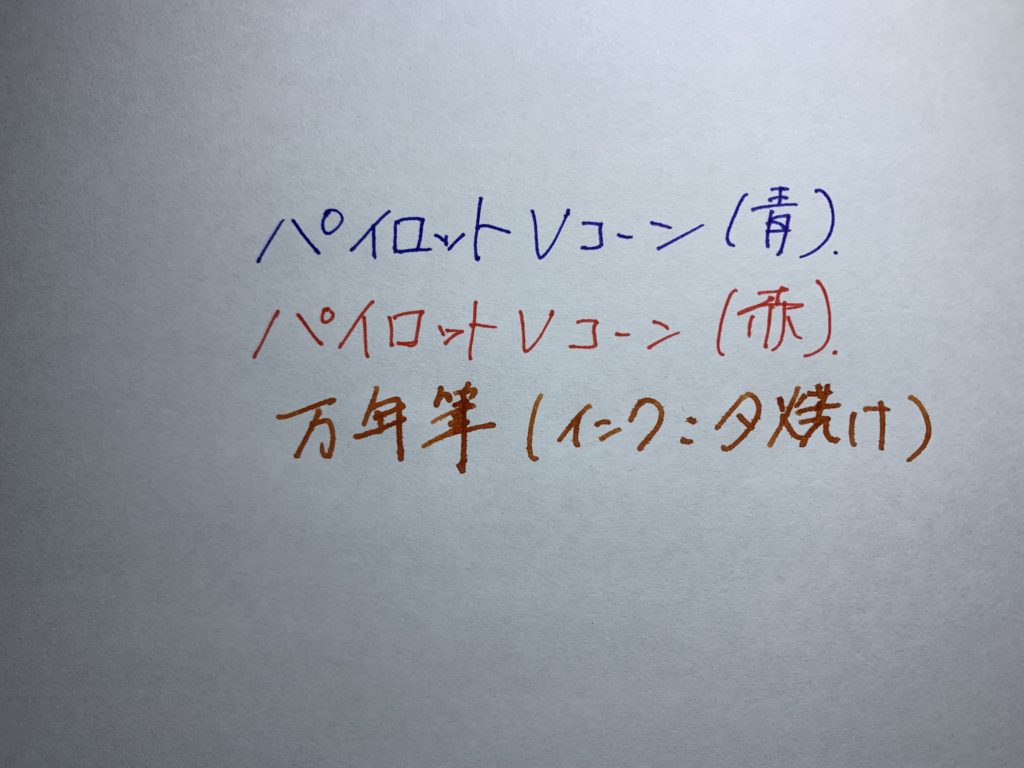 パイロットVコーン(青).
パイロットVコーン(赤).
万年筆(インク:夕焼け)